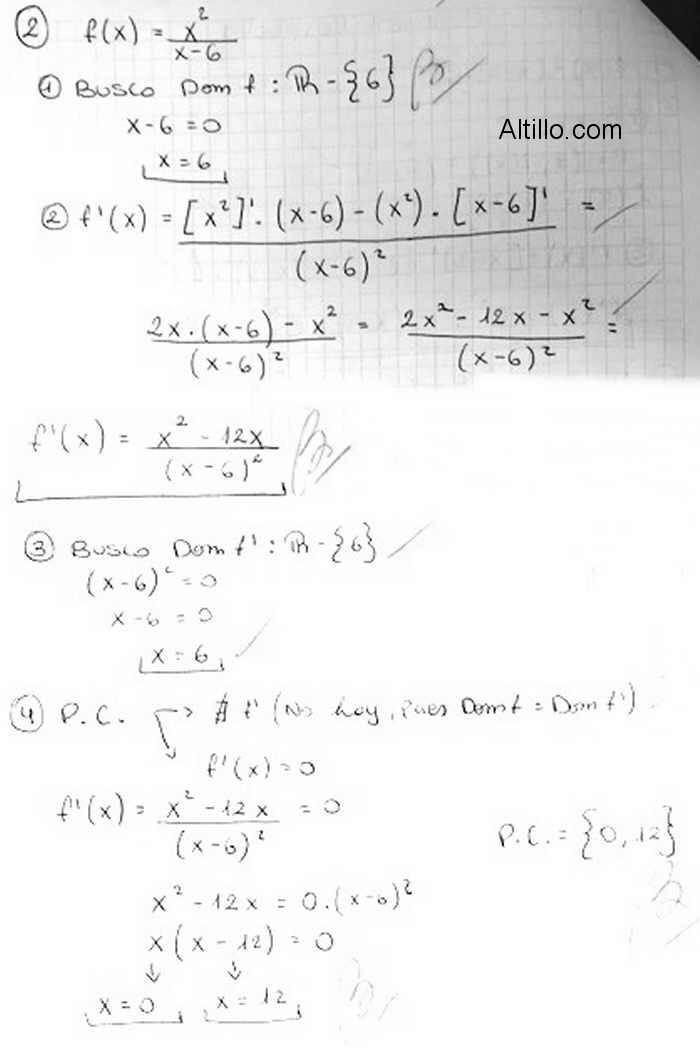 ② f(x) = x²/(x-6)
① Busco Dom f : ℝ - {6}
x-6=0
Altillo.com
x = 6
② f'(x) = ([x²]'. (x-6) - (x²) . [x-6]')/(x-6)² =
(2x.(x-6) - x²)/(x-6)² = (2x² - 12x - x²)/(x-6)² =
f'(x) = (x² - 12x)/(x-6)²
③ Busco Dom f' : ℝ - {6}
(x-6)² = 0
x-6 = 0
x = 6
④ P.C. → ∄ f' (No hay, pues Dom f = Dom f')
f'(x) = 0
f'(x) = (x² - 12x)/(x-6)² = 0
P.C. = {0, 12}
x² - 12x = 0.(x-6)²
x(x-12) = 0
↓ ↓
x = 0 x = 12